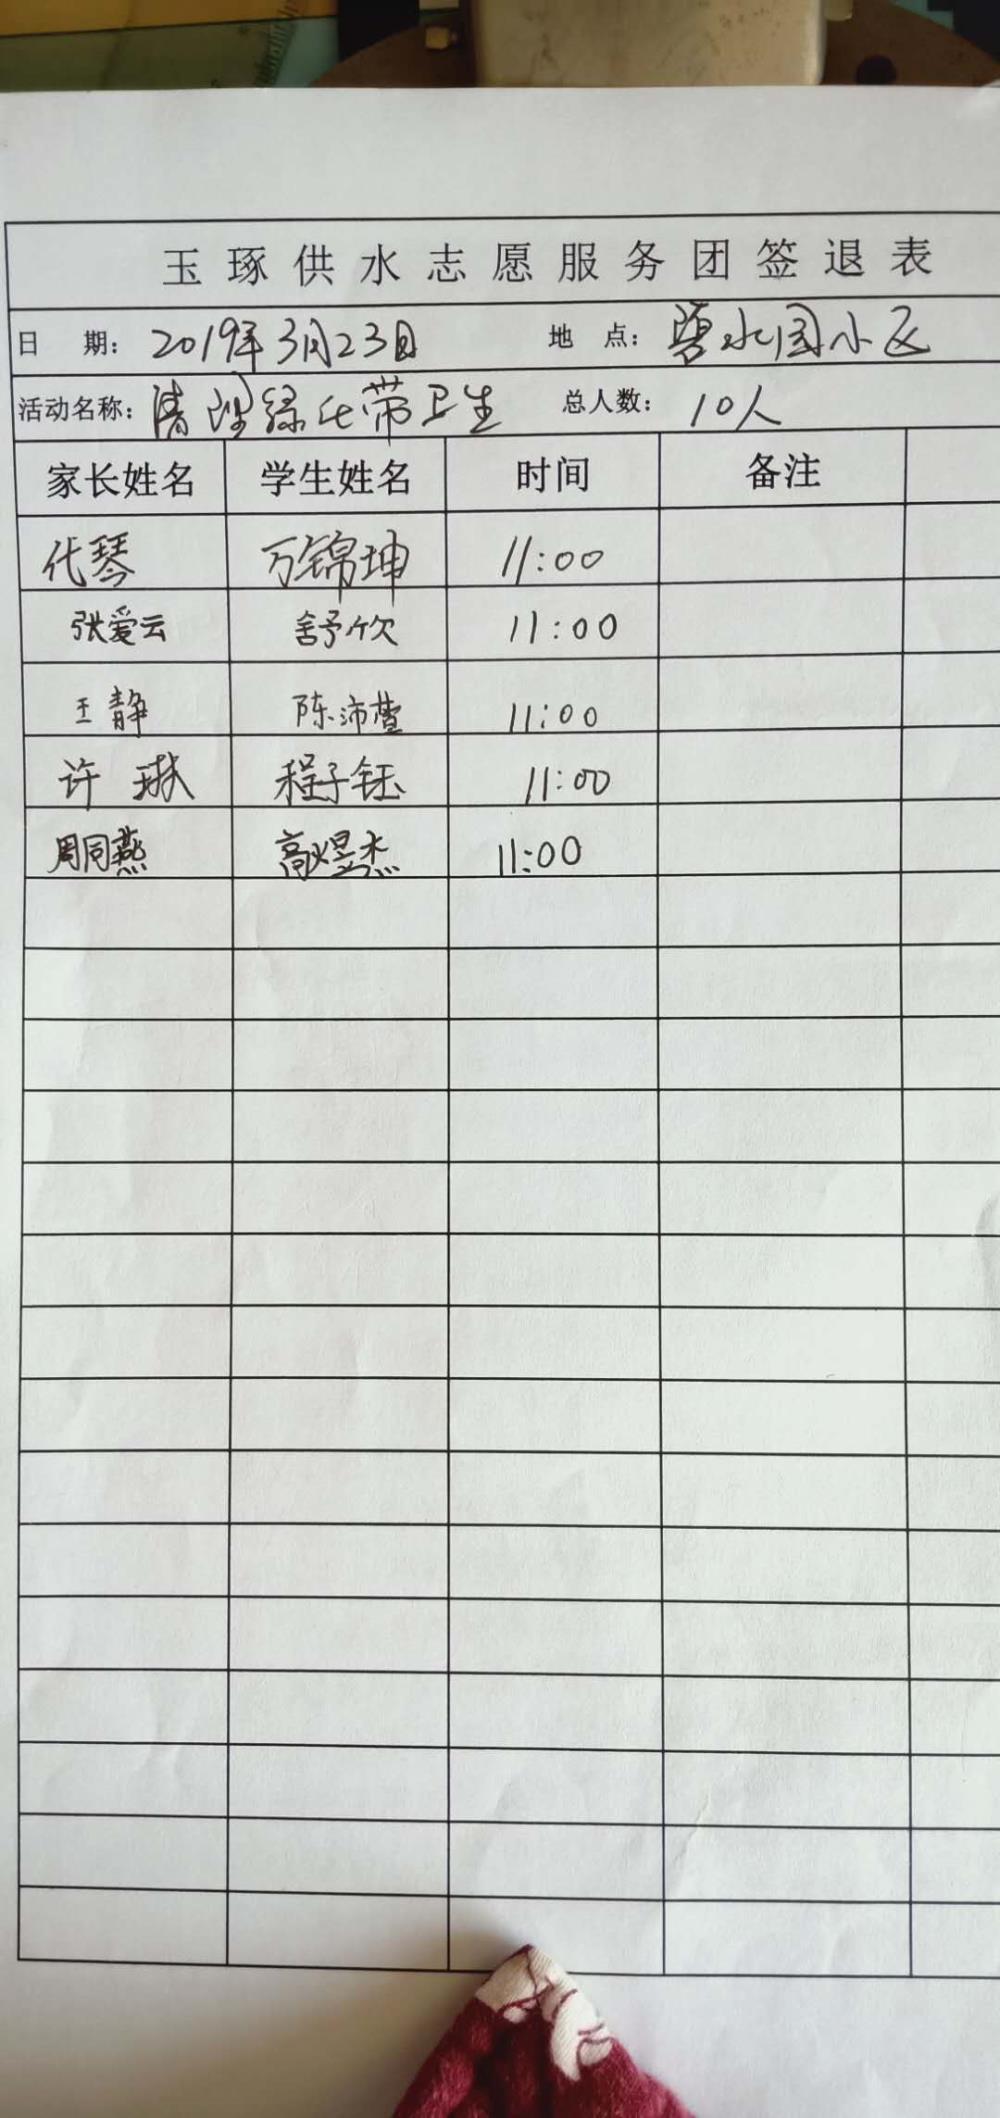 玉琢供水志愿服务团签退表
日 期: 2019年3月23日 地 点: 碧水园小区
活动名称: 清理绿化带卫生 总人数: 10人
家长姓名 学生姓名 时间 备注
代琴 万锦坤 11:00
张爱云 舒欣 11:00
王静 陈沛萱 11:00
许琳 程子钰 11:00
周同燕 高煜杰 11:00